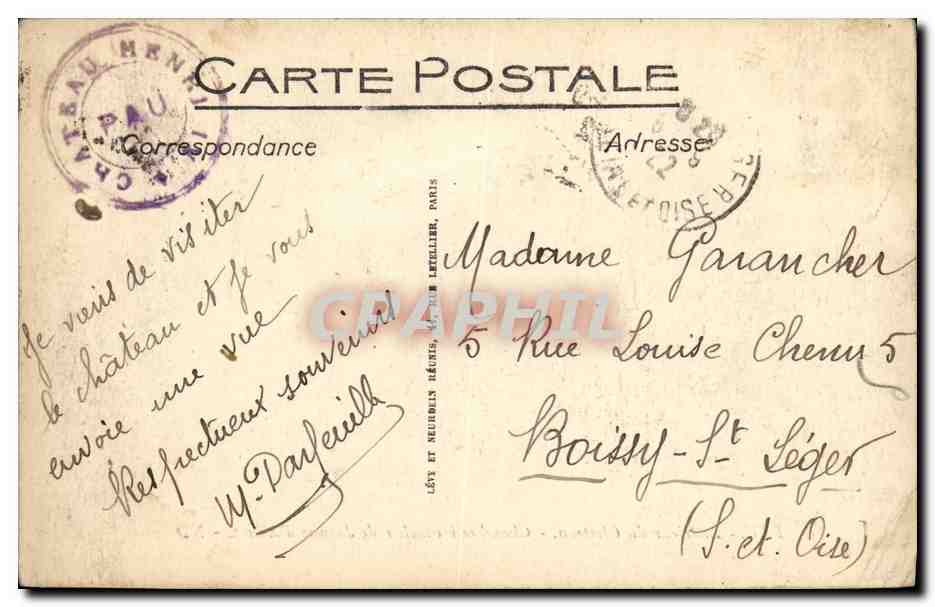 CHATEAU HENRI IV
PAU
CARTE POSTALE
Correspondance
Adresse
ET OISE
Je viens de visiter
le château et je vous
envoie une vue
Respectueux souvenirs
LÉVY ET NEURDEIN RÉUNIS, 44, RUE LETELLIER, PARIS
Madame Garancher
5 Rue Louise Chenu 5
Boissy-St Léger
(S. et. Oise)
CPARAMA
CPAPHIL